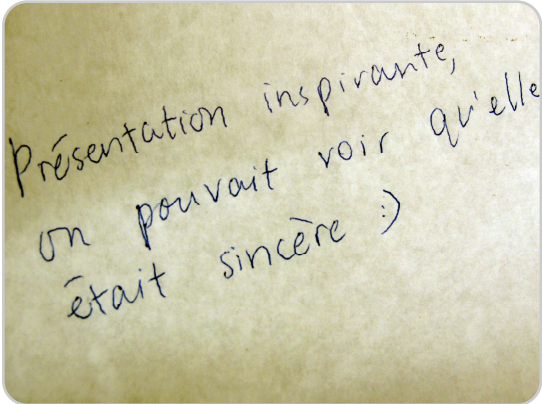 Présentation inspirante,
on pouvait voir qu'elle
était sincère :)